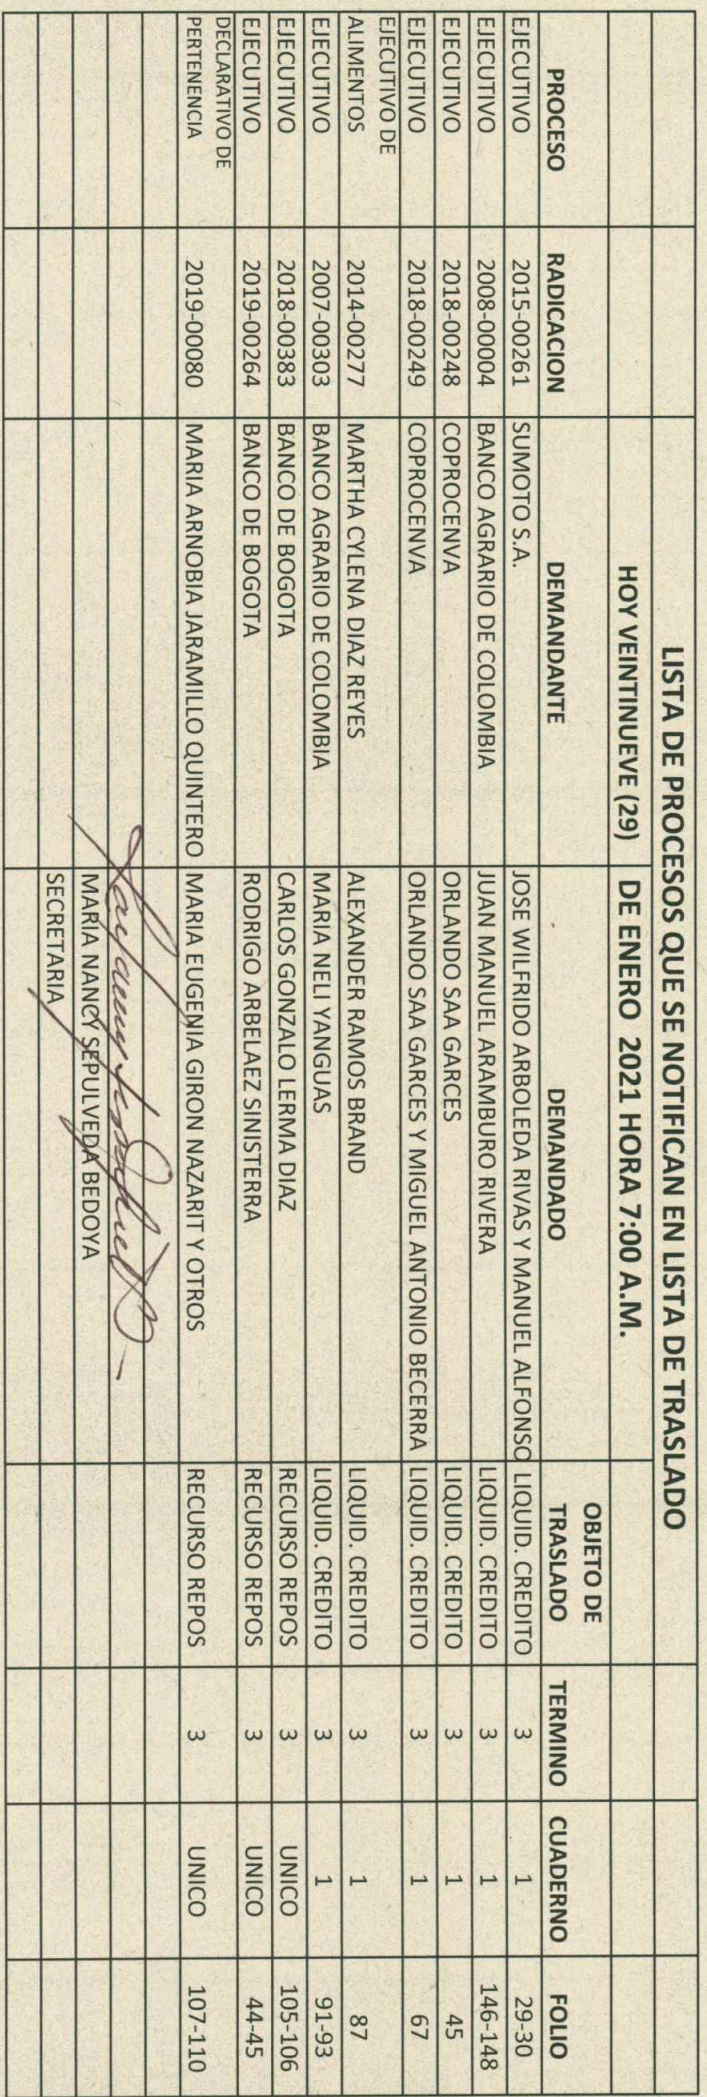 LISTA DE PROCESOS QUE SE NOTIFICAN EN LISTA DE TRASLADO
HOY VEINTINUEVE (29) DE ENERO 2021 HORA 7:00 A.M.
PROCESO RADICACION DEMANDANTE DEMANDADO OBJETO DE TRASLADO TERMINO CUADERNO FOLIO
EJECUTIVO 2015-00261 SUMOTO S.A. JOSE WILFRIDO ARBOLEDA RIVAS Y MANUEL ALFONSO LIQUID. CREDITO 3 1 29-30
EJECUTIVO 2008-00004 BANCO AGRARIO DE COLOMBIA JUAN MANUEL ARAMBURO RIVERA LIQUID. CREDITO 3 1 146-148
EJECUTIVO 2018-00248 COPROCENVA ORLANDO SAA GARCES LIQUID. CREDITO 3 1 45
EJECUTIVO 2018-00249 COPROCENVA ORLANDO SAA GARCES Y MIGUEL ANTONIO BECERRA LIQUID. CREDITO 3 1 67
EJECUTIVO DE
ALIMENTOS 2014-00277 MARTHA CYLENA DIAZ REYES ALEXANDER RAMOS BRAND LIQUID. CREDITO 3 1 87
EJECUTIVO 2007-00303 BANCO AGRARIO DE COLOMBIA MARIA NELI YANGUAS LIQUID. CREDITO 3 1 91-93
EJECUTIVO 2018-00383 BANCO DE BOGOTA CARLOS GONZALO LERMA DIAZ RECURSO REPOS 3 UNICO 105-106
EJECUTIVO 2019-00264 BANCO DE BOGOTA RODRIGO ARBELAEZ SINISTERRA RECURSO REPOS 3 UNICO 44-45
DECLARATIVO DE
PERTENENCIA 2019-00080 MARIA ARNOBIA JARAMILLO QUINTERO MARIA EUGENIA GIRON NAZARIT Y OTROS RECURSO REPOS 3 UNICO 107-110
MARIA NANCY SEPULVEDA BEDOYA
SECRETARIA